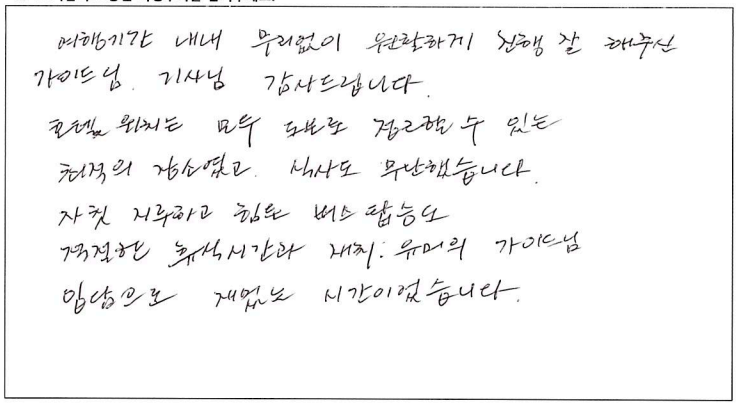 여행기간 내내 무리없이 원활하게 진행 잘 해주신
가이드님, 기사님 감사드립니다.
호텔 위치는 모두 도보로 접근할 수 있는
최적의 장소였고, 식사도 무난했습니다.
자칫 지루하고 힘든 버스 탑승도
적절한 휴식시간과 재치·유머의 가이드님
입담으로 재밌는 시간이었습니다.